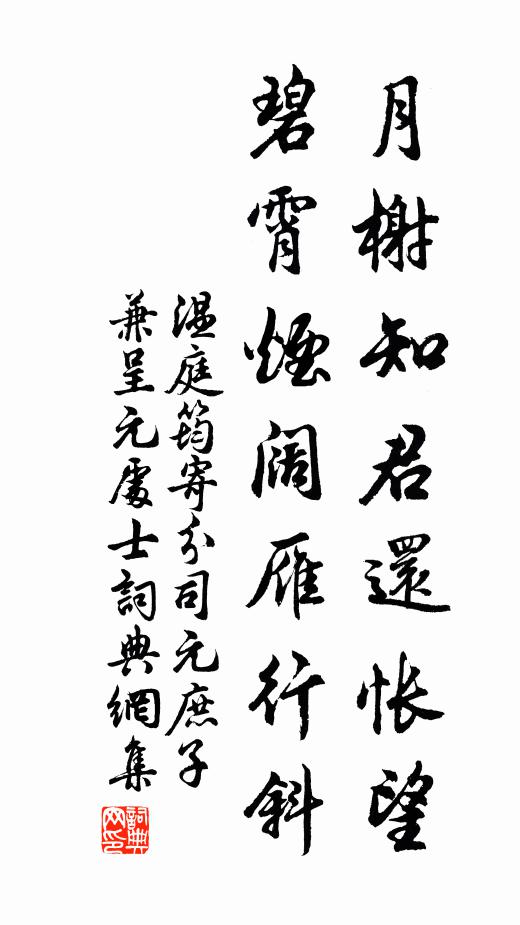 月榭知君還悵望
碧霄煙闊雁行斜
溫庭筠寄分司元庶子
兼呈元處士詞典網集
詞典
网印